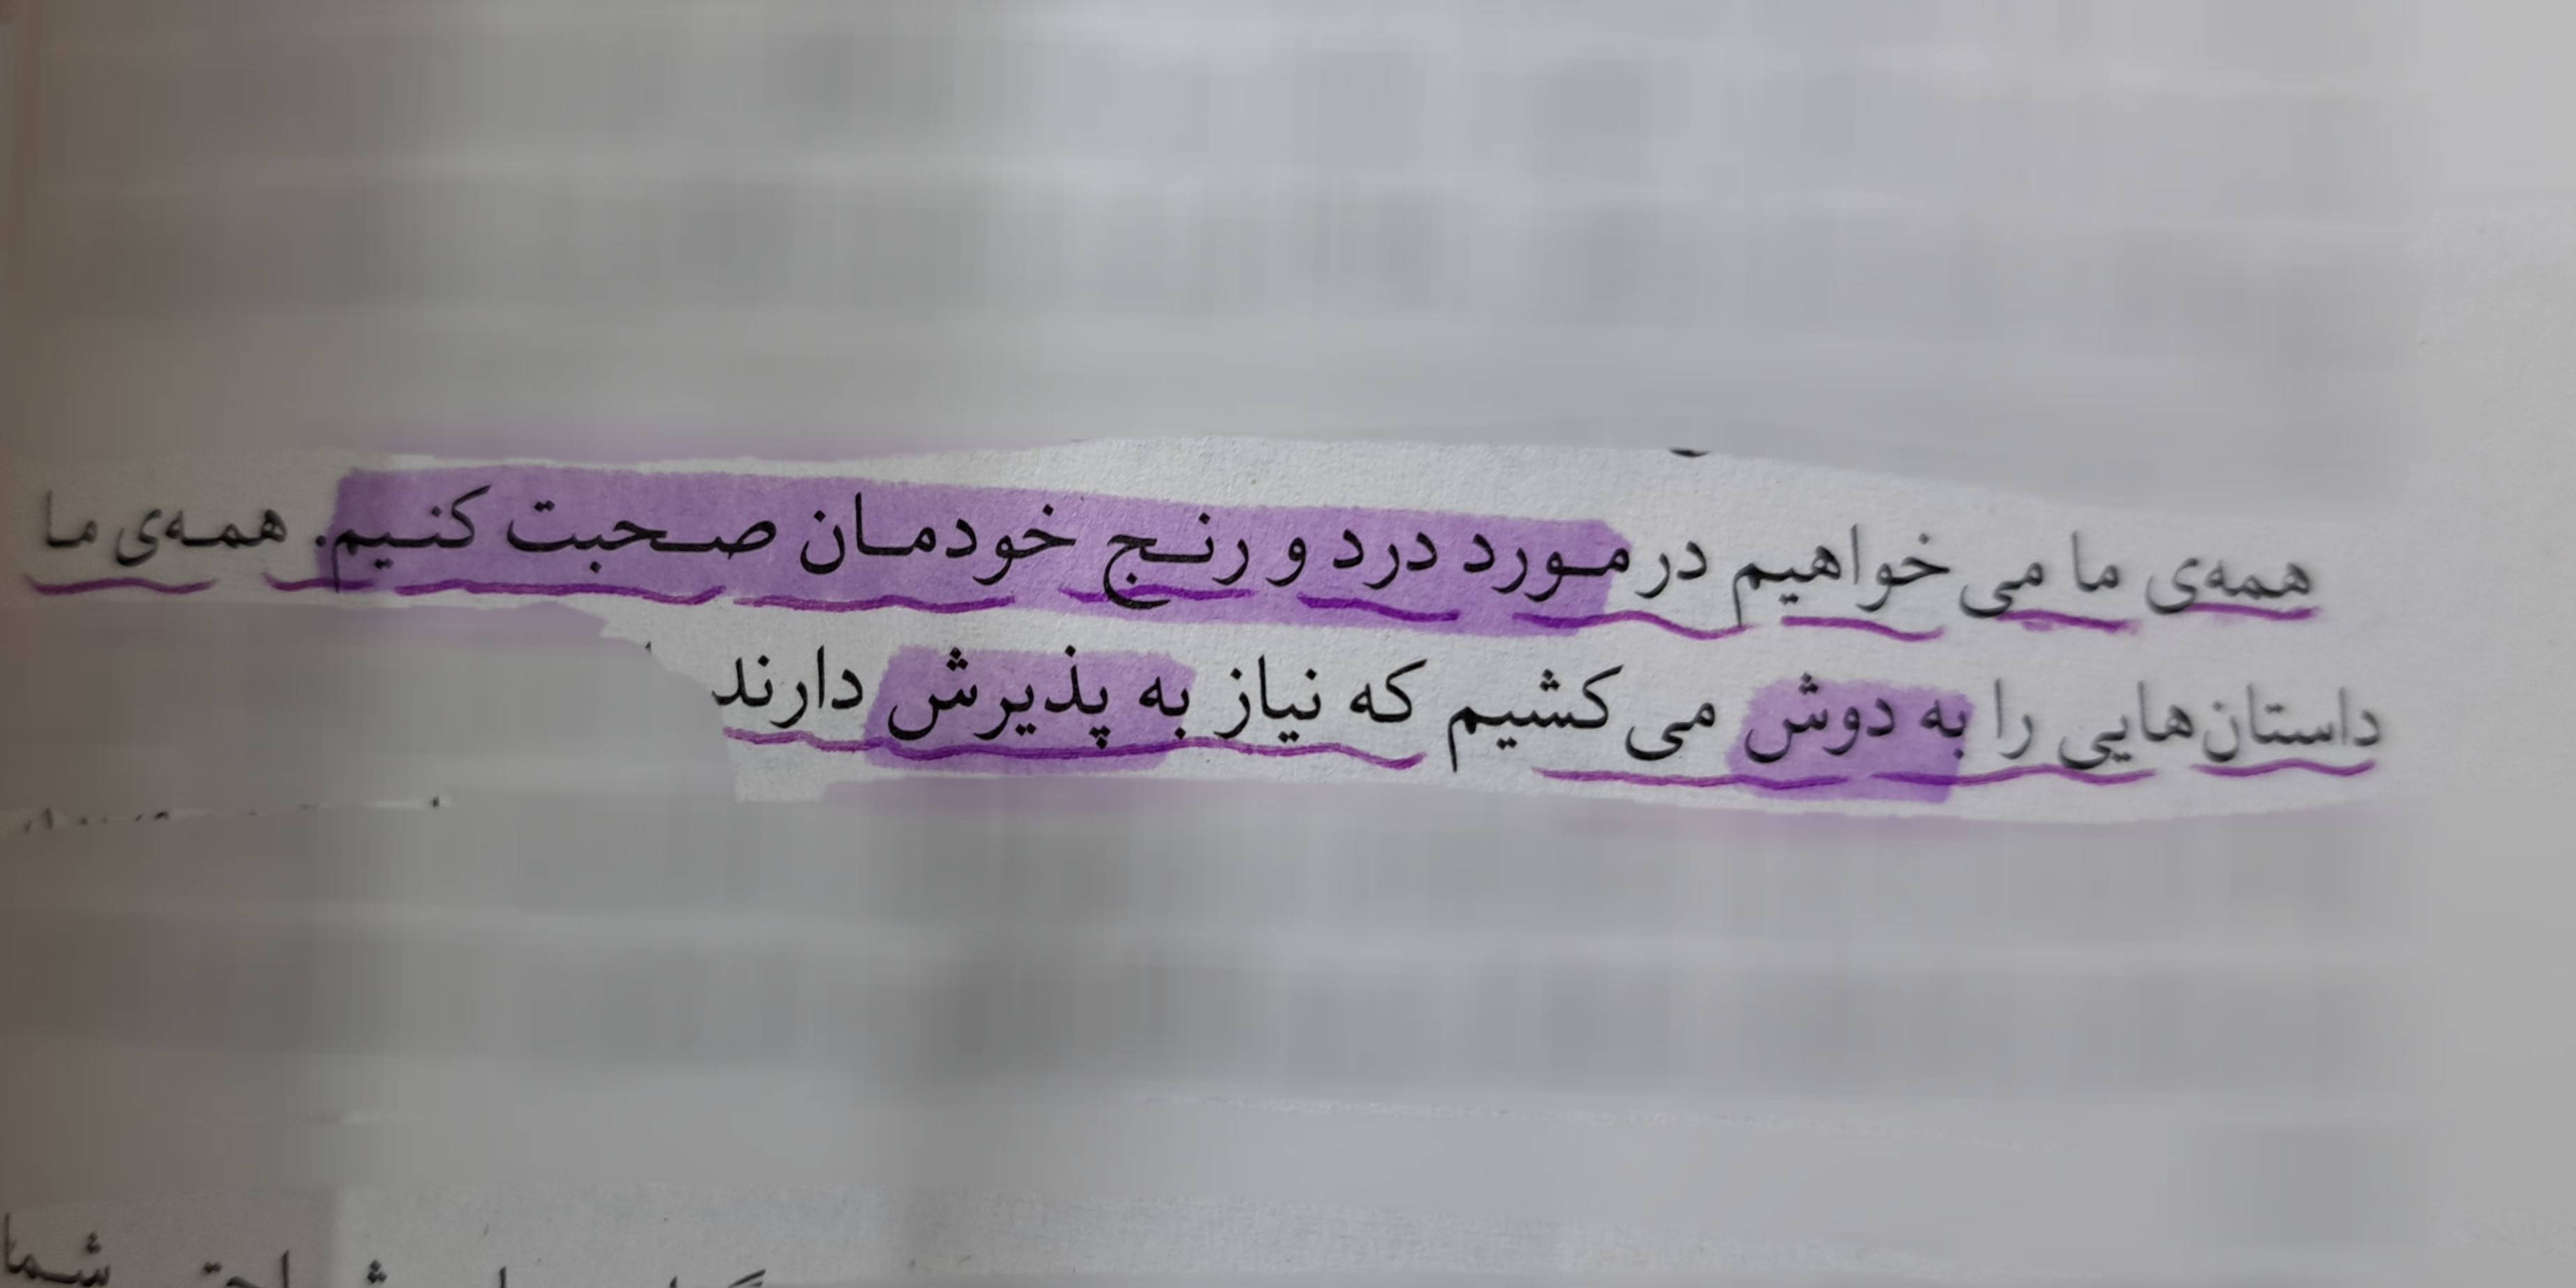 همه‌ی ما می خواهیم در مورد درد و رنج خودمان صحبت کنیم. همه‌ی ما
داستان‌هایی را به دوش می‌کشیم که نیاز به پذیرش دارند
شما